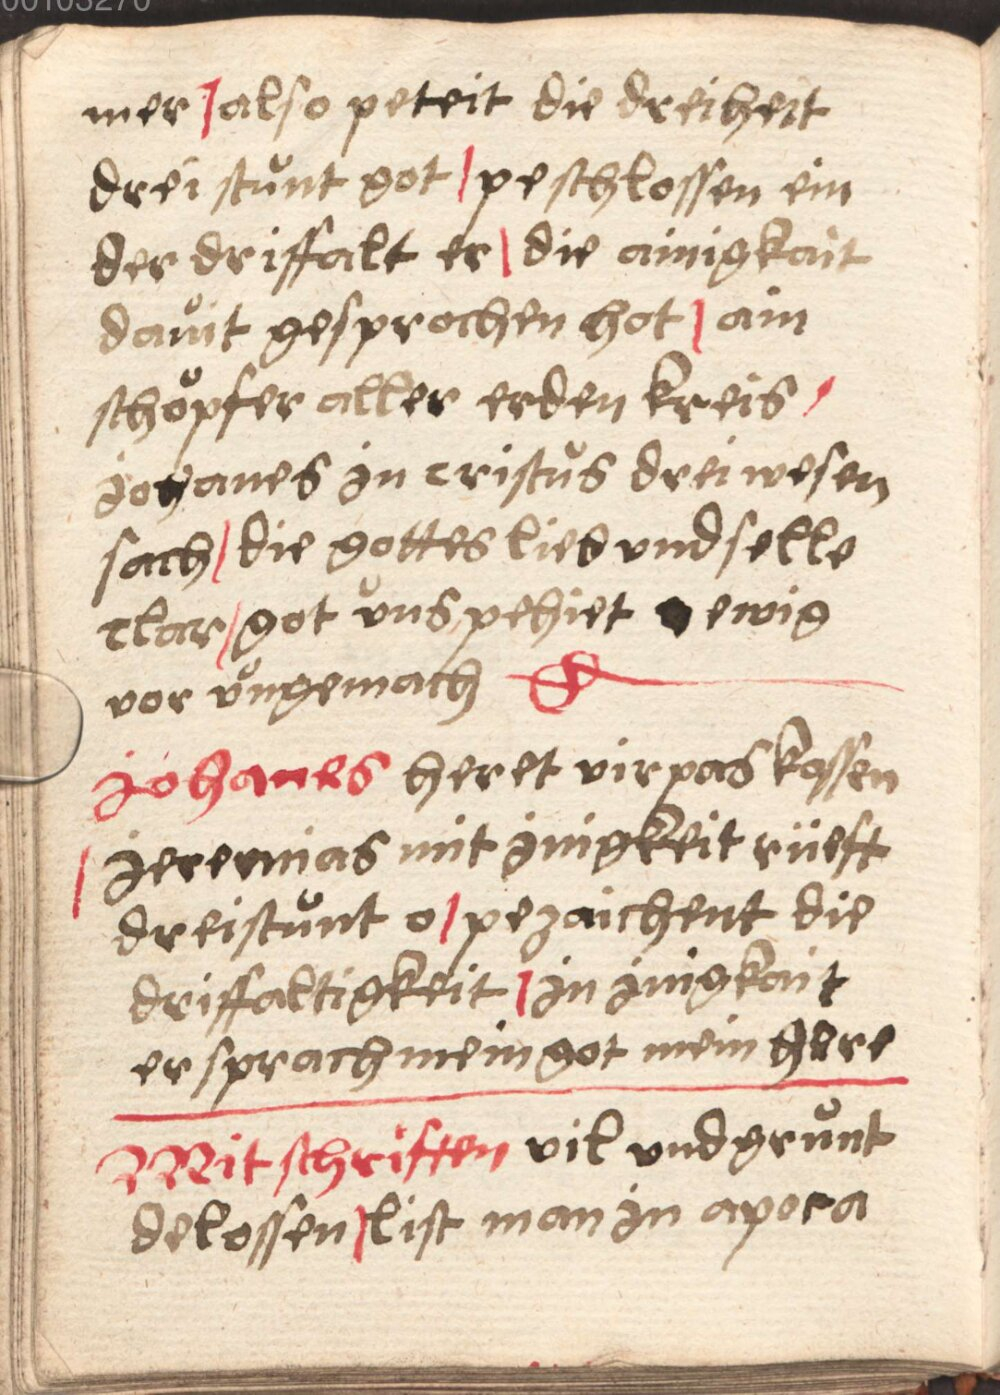 00103270
mer / also peteit die dreiheit
drei stůnt got / peschlossen ein
der driffalt er / die ainigkait
dauit gesprochen hot / ain
schöpfer aller erden kreis /
johanes jn cristůs drei wesen
sach / die gottes lieb vnd selle
clar / got vns pehiet ewig
vor vngemach
johanes heret vir pas kossen
/ jeremias mit jnigkeit rüeft
dreistůnt o / pezaichent die
driffaltigkeit / jn jnigkait
er sprach mein got mein here
Mit schriften vil vnd grůnt
delossen / list man jn apoca